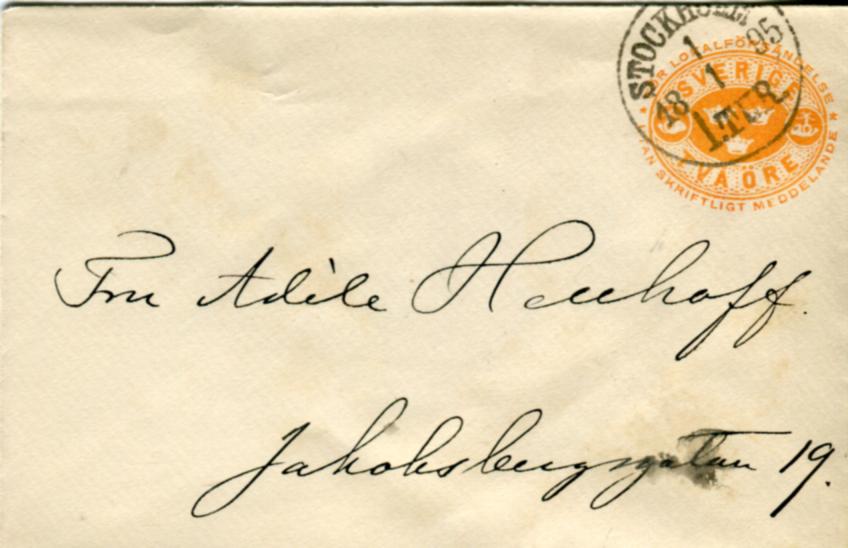 STOCKHOLM
1 95
18 1
1.TUR.
FÖR LOKALFÖRSÄNDELSE
SVERIGE
TVÅ ÖRE
UTAN SKRIFTLIGT MEDDELANDE
Fru Adèle
Jakobsbergsgatan 19.